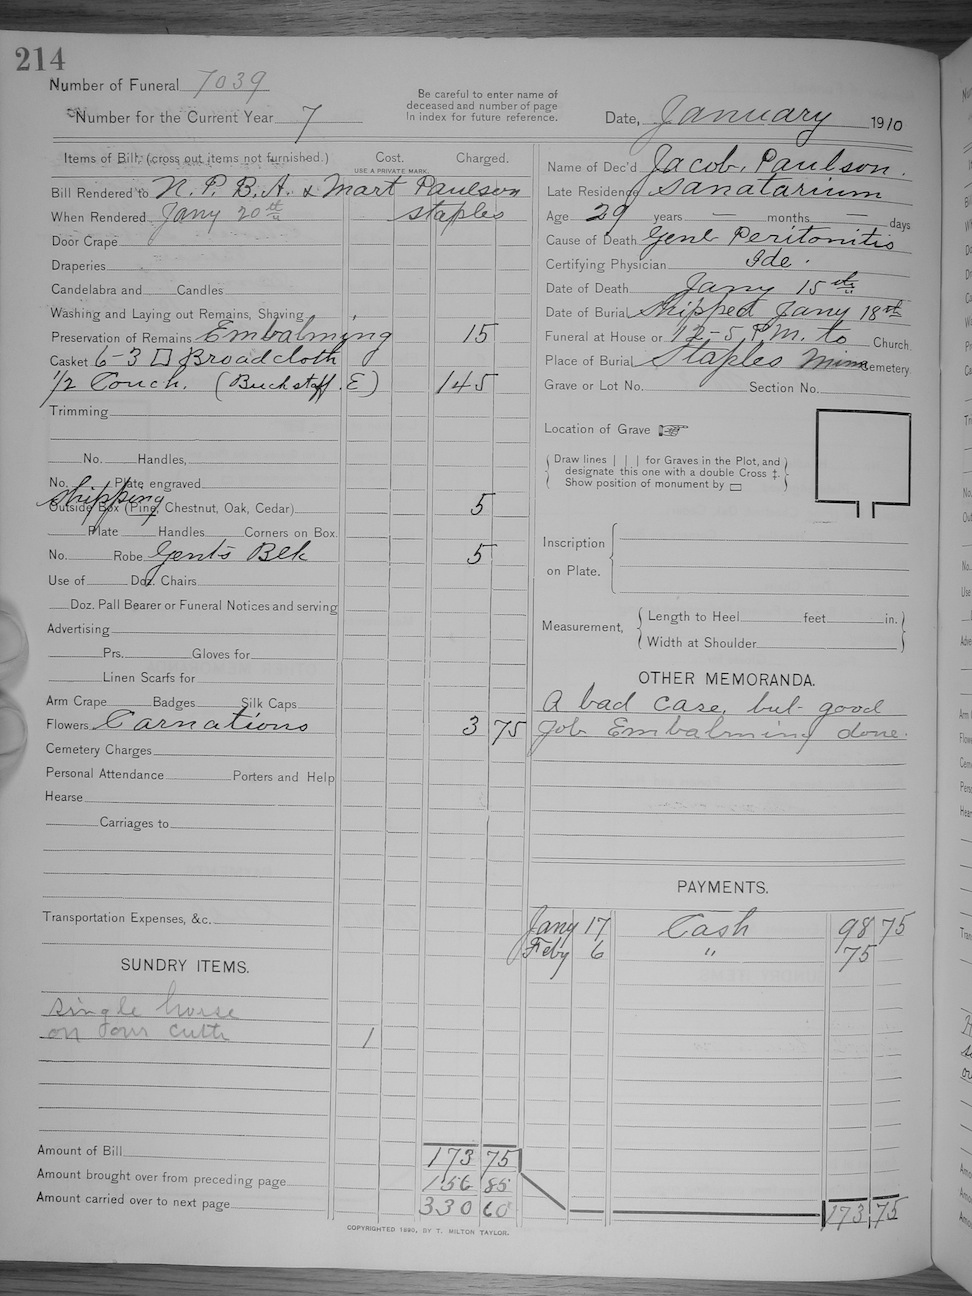 214
Number of Funeral 7039
Number for the Current Year 7
Be careful to enter name of
deceased and number of page
in index for future reference.
Date, January 1910
Items of Bill, (cross out items not furnished.) Cost. Charged.
USE A PRIVATE MARK.
Bill Rendered to N. P. B. A. & Mart Paulson
When Rendered Jany 20th Staples
Door Crape
Draperies
Candelabra and Candles
Washing and Laying out Remains, Shaving
Preservation of Remains Embalming 15
Casket 6-3 □ Broadcloth
1/2 Couch. (Buckstaff E) 145
Trimming
No. Handles,
No. Plate engraved
Shipping
Outside Box (Pine, Chestnut, Oak, Cedar) 5
Plate Handles Corners on Box.
No. Robe Gent's Blk 5
Use of Doz. Chairs
Doz. Pall Bearer or Funeral Notices and serving
Advertising
Prs. Gloves for
Linen Scarfs for
Arm Crape Badges Silk Caps
Flowers Carnations 3 75
Cemetery Charges
Personal Attendance Porters and Help
Hearse
Carriages to
Transportation Expenses, &c.
SUNDRY ITEMS.
single horse
on our cutter 1
Amount of Bill 173 75
Amount brought over from preceding page 156 85
Amount carried over to next page 330 60
COPYRIGHTED 1890, BY T. MILTON TAYLOR.
Name of Dec'd Jacob Paulson.
Late Residence Sanatarium
Age 29 years — months — days
Cause of Death Genl Peritonitis
Certifying Physician Ide.
Date of Death Jany 15th
Date of Burial Shipped Jany 18th
Funeral at House or 12-5 P.M. to Church
Place of Burial Staples Minn Cemetery
Grave or Lot No. Section No.
Location of Grave
Draw lines | | | for Graves in the Plot, and
designate this one with a double Cross ‡.
Show position of monument by ▭
Inscription
on Plate.
Measurement, Length to Heel feet in.
Width at Shoulder
OTHER MEMORANDA.
A bad case, but good
job Embalming done.
PAYMENTS.
Jany 17 Cash 98 75
Feby 6 " 75
173 75